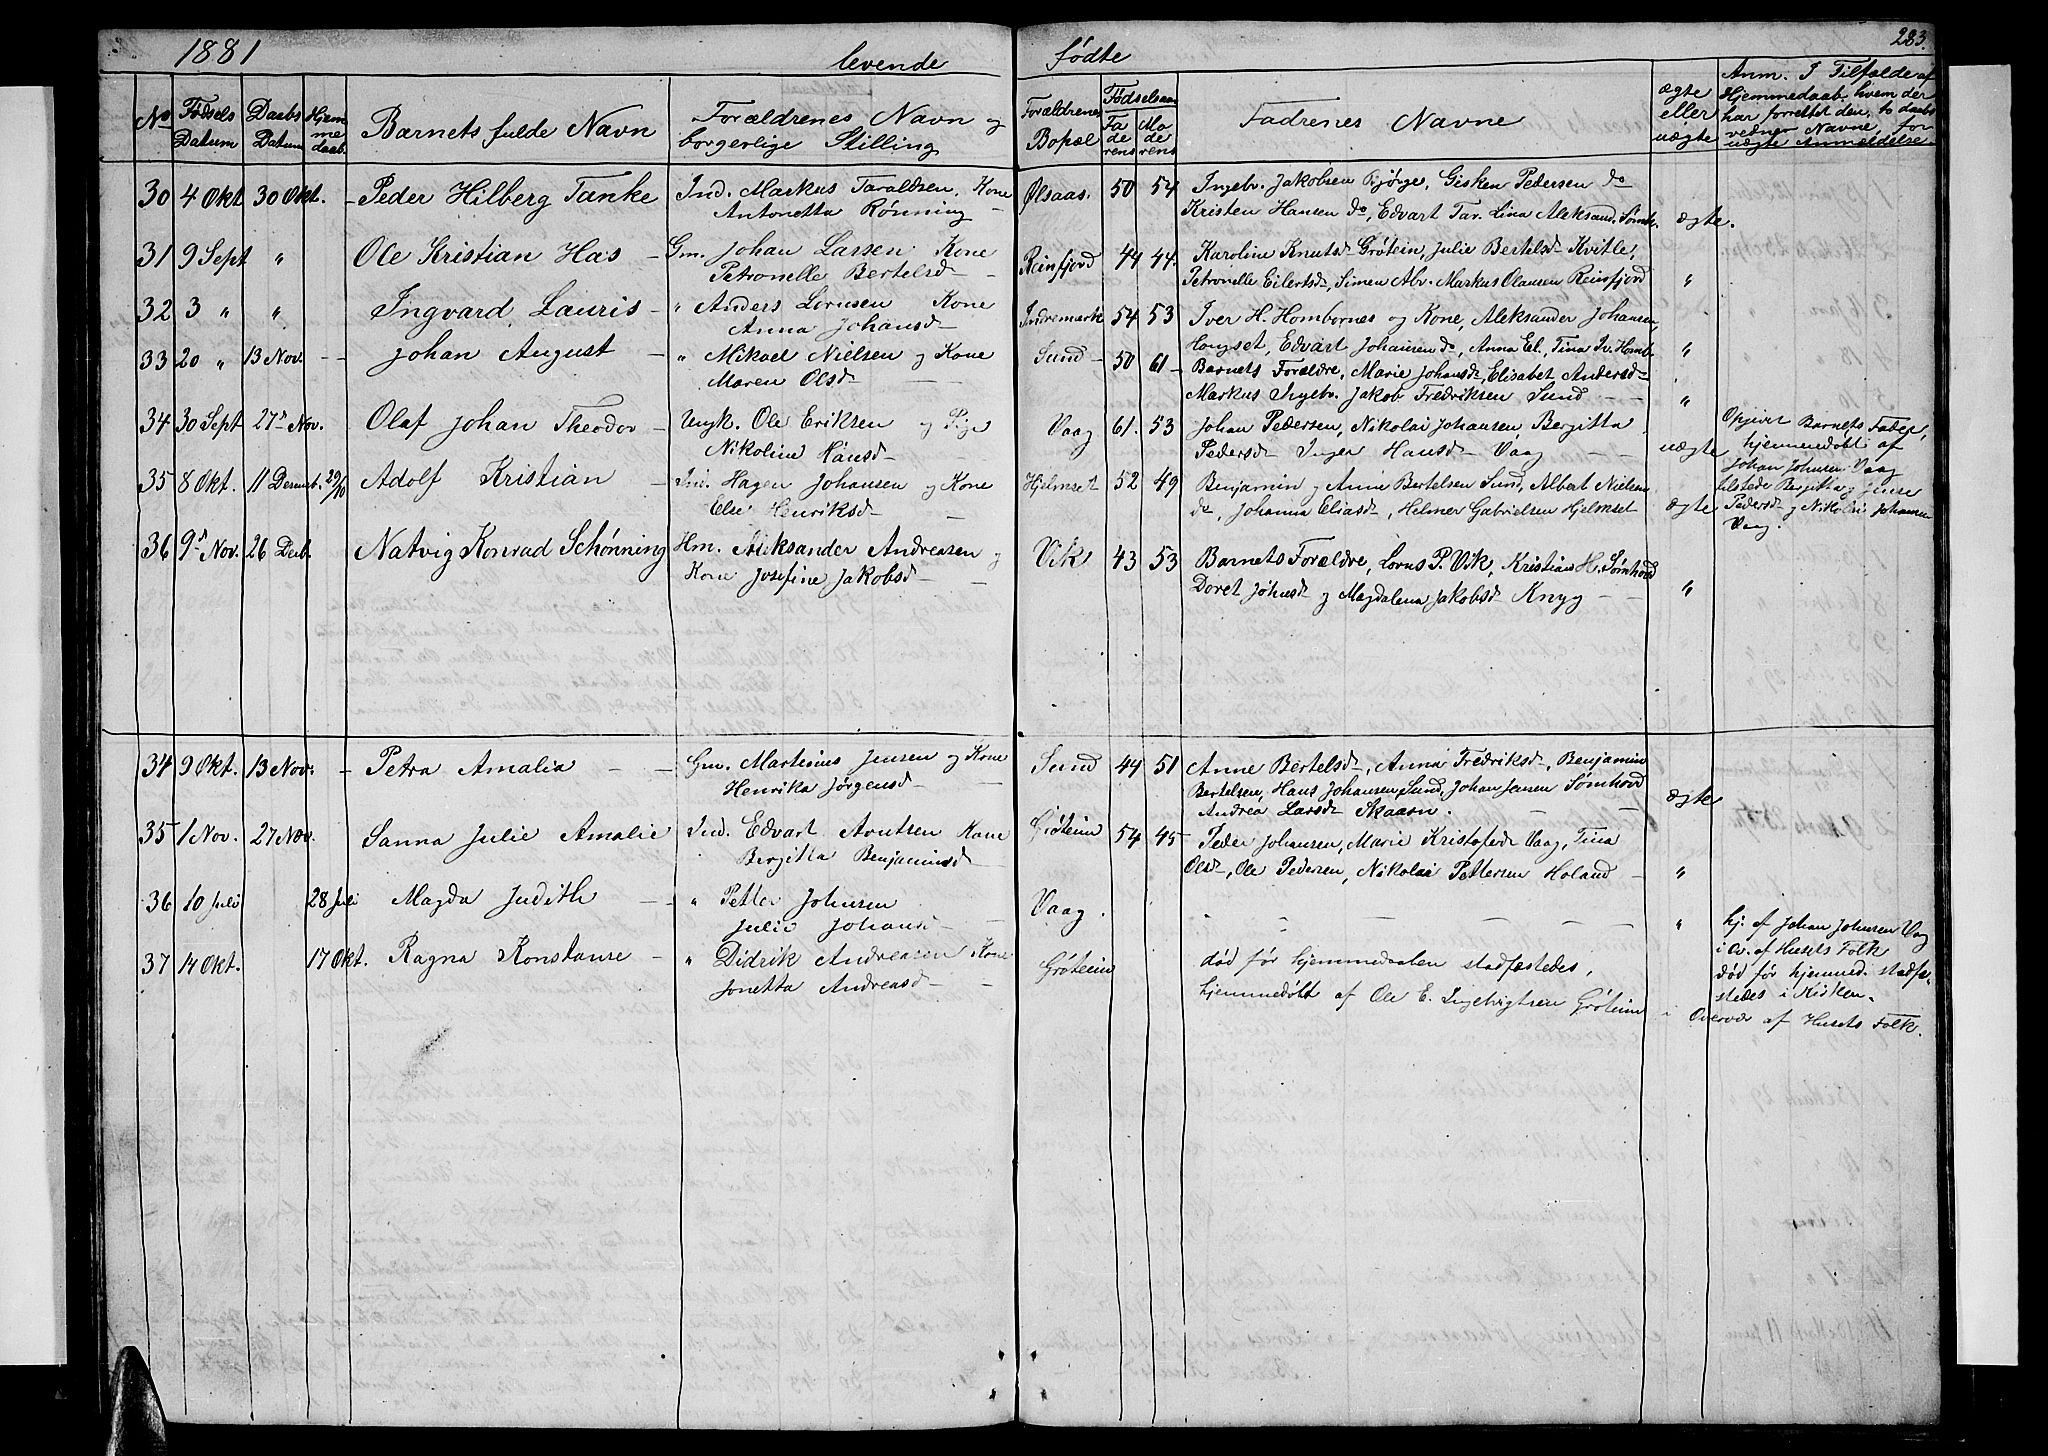 1881 levende fødte 283.
No Fødsels Datum Daabs Datum Hjemmedaab. Barnets fulde Navn Forældrenes Navn og borgerlige Stilling Forældrenes Bopæl Fødselsaar Faderens Moderens Fadrenes Navne ægte eller uægte Anm. I Tilfælde af Hjemmedaab. hvem der har forrettet den, to daabsvidner Navne, for uægte Anmeldelse
30 4 Okt 30 Okt. Peder Hilberg Tanke Ind. Markus Taraldsen, Kone Ølsaas. 50 54 Ingebr. Jakobsen Bjørge, Gisken Pedersen do
Antonetta Rønning Kristen Hansen do, Edvart Tar. Lina Aleksand. Sømh. ægte.
31 9 Sept " Ole Kristian Has Gm. Johan Larsen Kone Reinfjord 44 44. Karoline Knutsd Grøtein, Julie Bertelsd Kvitle,
Petronelle Bertelsd Petronelle Eilertsd, Simen Abr. Markus Olausen Reinfjord "
32 3 " " Ingvard Lauris " Anders Lornsen Kone Indremark 54 53 Iver H. Hombornes og Kone, Aleksander Johansen,
Anna Johansd Hongset, Edvart Johansen do, Anna El., Tina Iv. Homb. "
33 20 " 13 Nov. Johan August " Mikael Nielsen og Kone Sund 50 61 Barnets Forældre, Marie Johansd, Elisabet Andersd
Maren Olsd Markus Ingebr. Jakob Fredriksen Sund "
34 30 Sept 27 Nov. Olaf Johan Theodor Ungk. Ole Eriksen og Pige Vaag 61. 53 Johan Pedersen, Nikolai Johansen, Bergitta Opgivet Barnets Fader,
Nikoline Hansd Pedersd Inger Hansd Vaag uægte hjemmedøbt af
Johan Johnsen Vaag
35 8 Okt. 11 Decemb. 29/10 Adolf Kristian Ind. Hagen Johansen og Kone Hjelmset 52 49 Benjamin og Anne Bertelsen Sund, Albert Nielsen tilstede Bergitta og Jense
Else Henriksd do, Johanna Eliasd, Helmer Gabrielsen Hjelmset ægte Pedersd og Nikolai Johansen
Vaag.
36 9 Nov. 26 Decb. Natvig Konrad Schønning Hm. Aleksander Andreasen og Vik 43 53 Barnets Forældre, Lorns P. Vik, Kristian H. Sømhovd
Kone Josefine Jakobsd Doret Johnsd og Magdalena Jakobsd Knyg "
34 9 Okt. 13 Nov. Petra Amalia Gm. Martinius Jensen og Kone Sund 44 51 Anne Bertelsd, Anna Fredriksd, Benjamin
Henrika Jørgensd Bertelsen, Hans Johansen Sund, Johan Jensen Sømhovd
Andrea Larsd Skaasn. ægte
35 1 Nov. 27 Nov. Sanna Julie Amalie Ind. Edvart Arntsen Kone Grøteim 54 45 Peder Johansen, Marie Kristofersd Vaag, Tina
Bergitta Benjaminsd Olsd, Ole Pedersen, Nikolai Pettersen Holand "
36 10 Juli 28 Juli Magda Judith " Petter Johnsen Vaag. " hj. af Johan Johnsen Vaag
Julie Johansd i Ov. af Husets Folk
37 14 Okt. 17 Okt. Ragna Konstanse " Didrik Andreasen Kone Grøteim død før hjemmedaaben stadfæstedes, død før hjemmed. stadfæ-
Jonetta Andreasd hjemmedøbt af Ole E. Ingebrigtsen Grøteim stedes i Kirken.
i Overvær af Husets Folk.